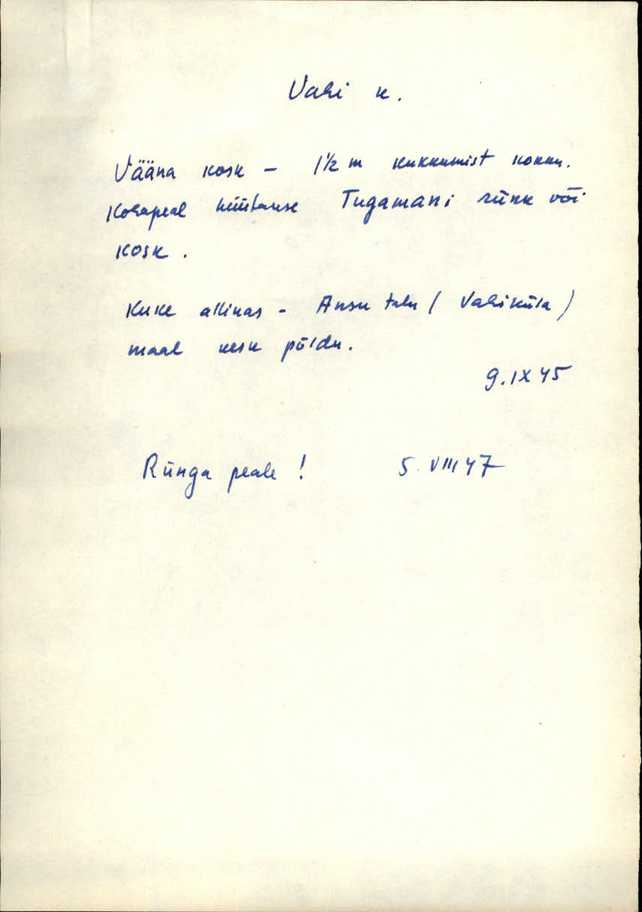 Vahi k.
Vääna kosk – 1½ m kukkumist kokku.
Kohapeal hüütakse Tugamani rünk või
kosk.
Kuke allikas - Ansu talu (Vahiküla)
maal kesk põldu.
9.IX 45
Rünga peale! 5.VIII 47